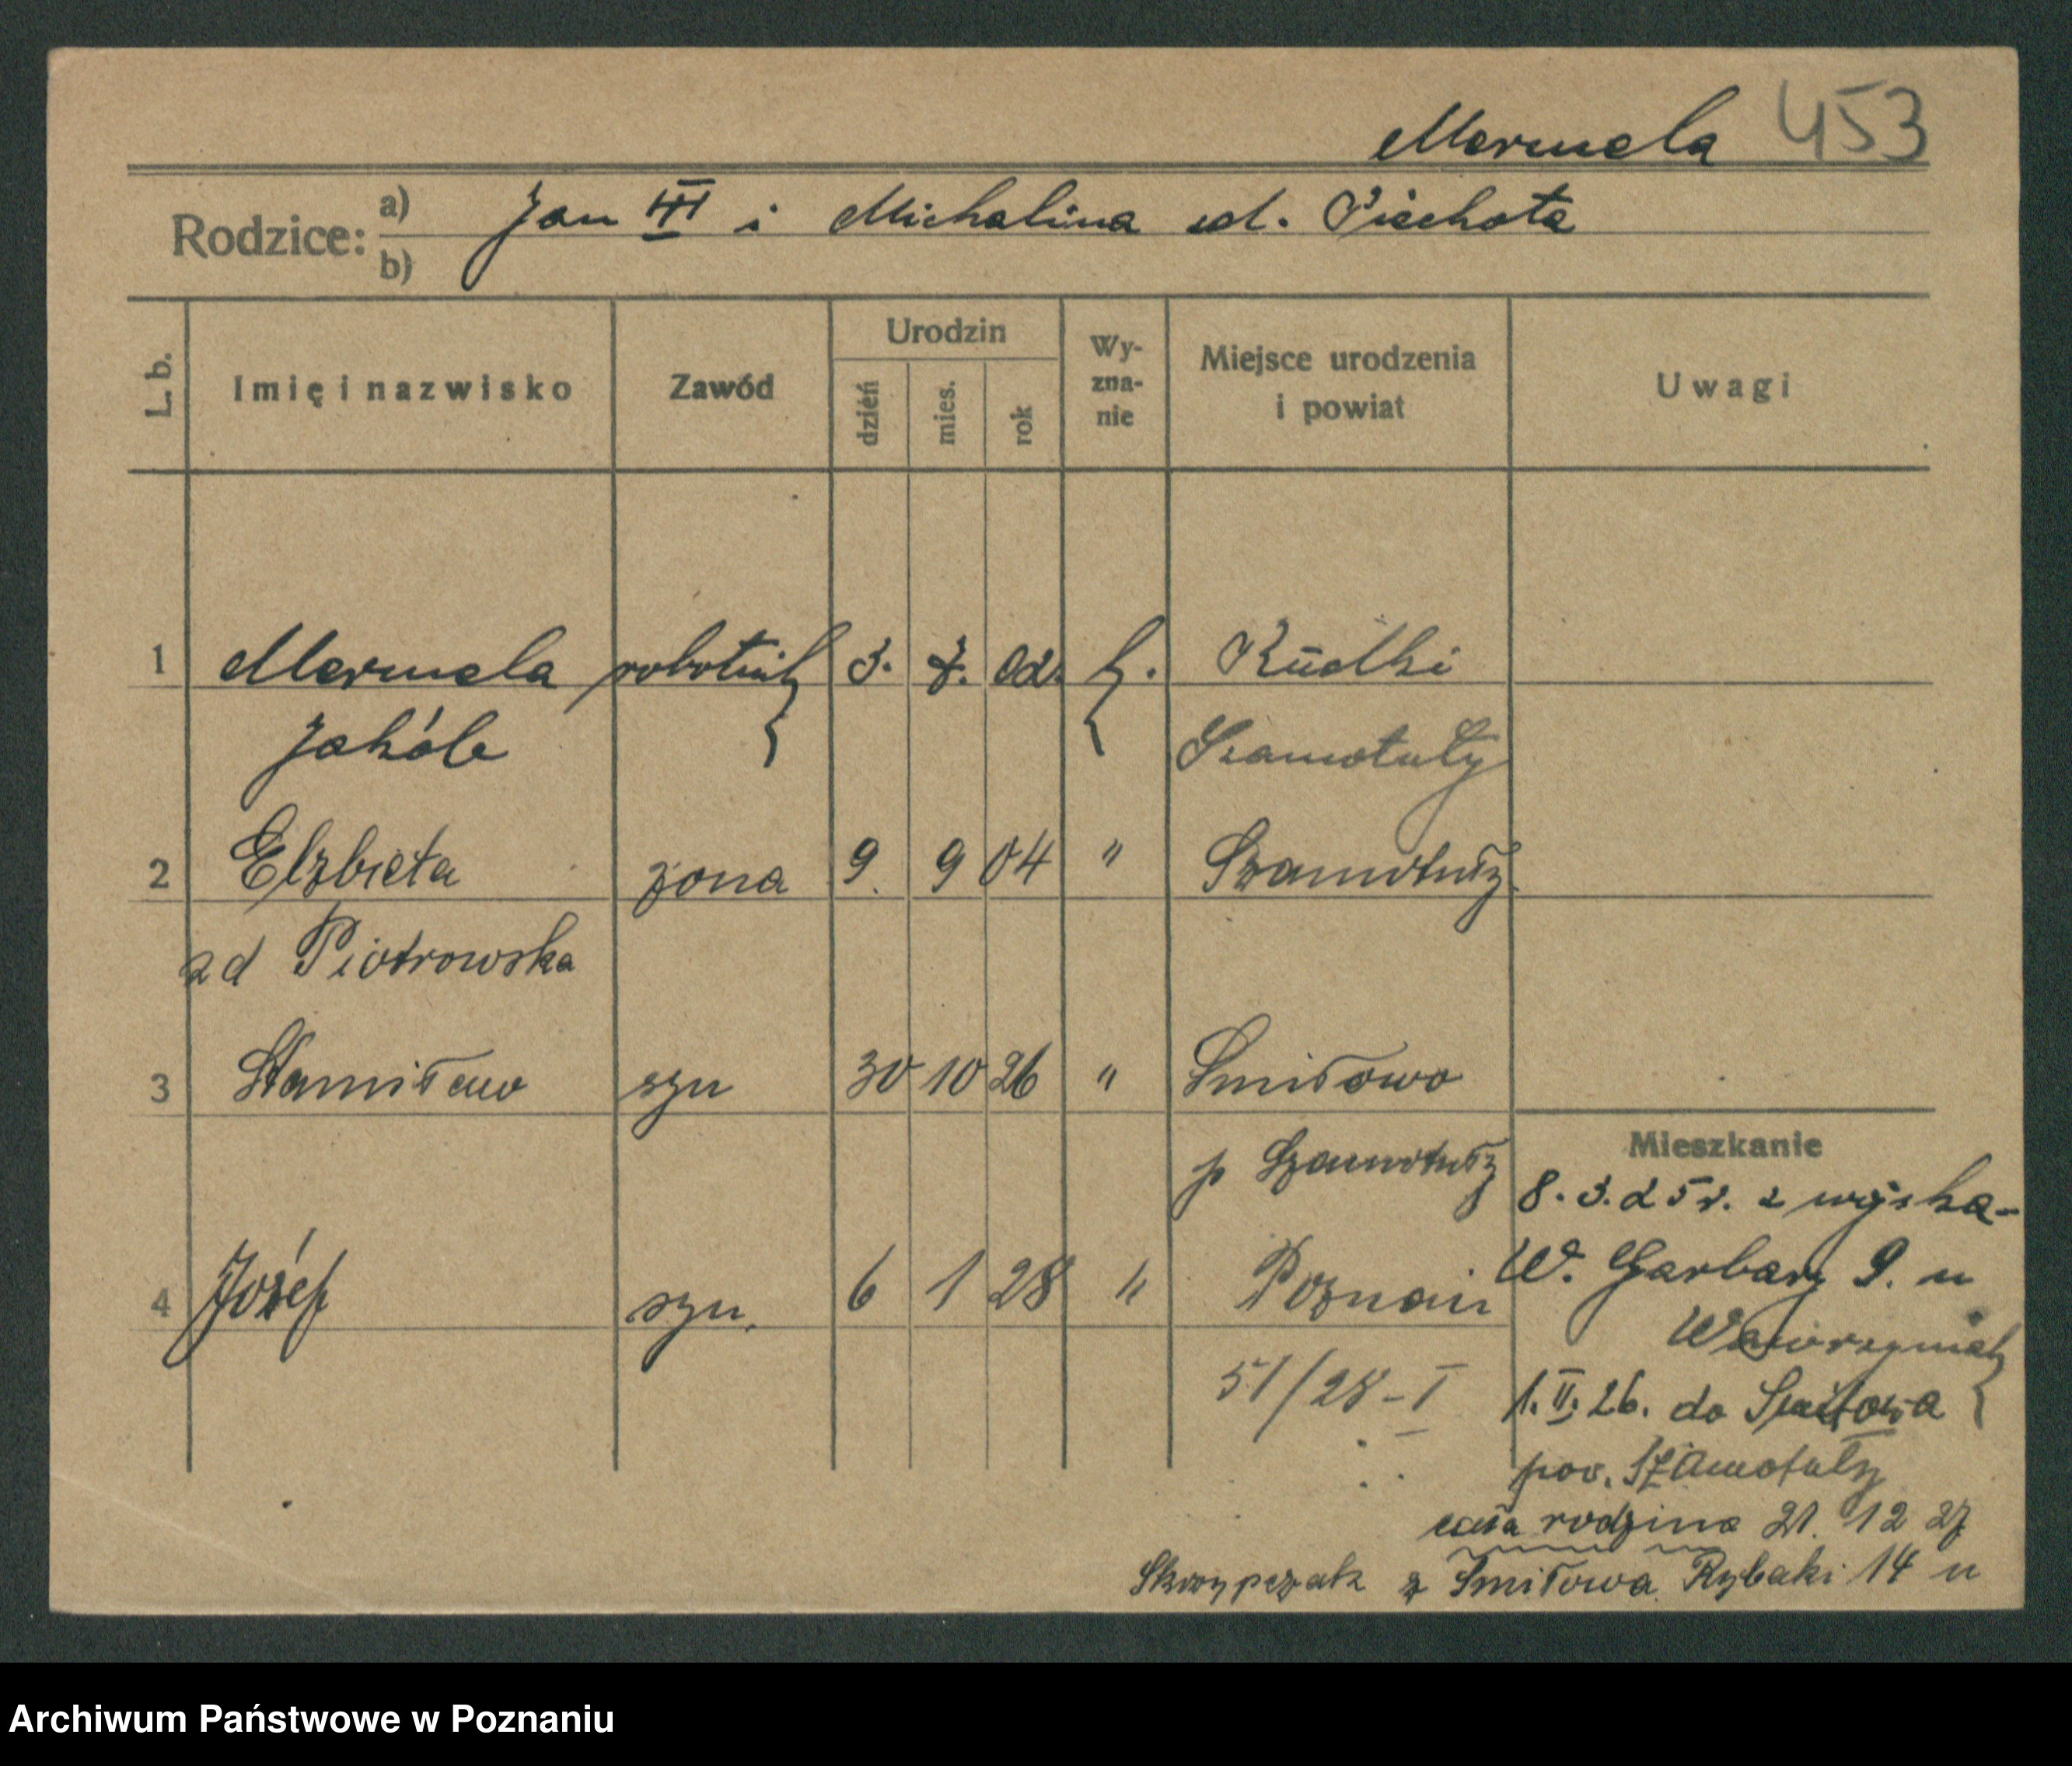 Mermela 453
Rodzice: a) Jan III i Michalina zd. Piechota
b)
L. b. Imię i nazwisko Zawód Urodzin dzień mies. rok Wyznanie Miejsce urodzenia i powiat Uwagi
1 Mermela robotnik 3. 7. 02. k. Rudki
Jakób Szamotuły
2 Elzbieta zona 9. 9 04 " Szamotuły
zd Piotrowska
3 Stanisław syn 30 10 26 " Smiłowo
p Szamotuły
4 Józef syn. 6 1 28 " Poznań
51/28-I
Mieszkanie
8. 3. 25 r. z wojska-
W. Garbary 9. u
Wawrzyniak
1. II. 26. do Smiłowa
pow. Szamotuły
cała rodzina 21. 12 27
Skrzypczak z Smiłowa Rybaki 14 u
Archiwum Państwowe w Poznaniu